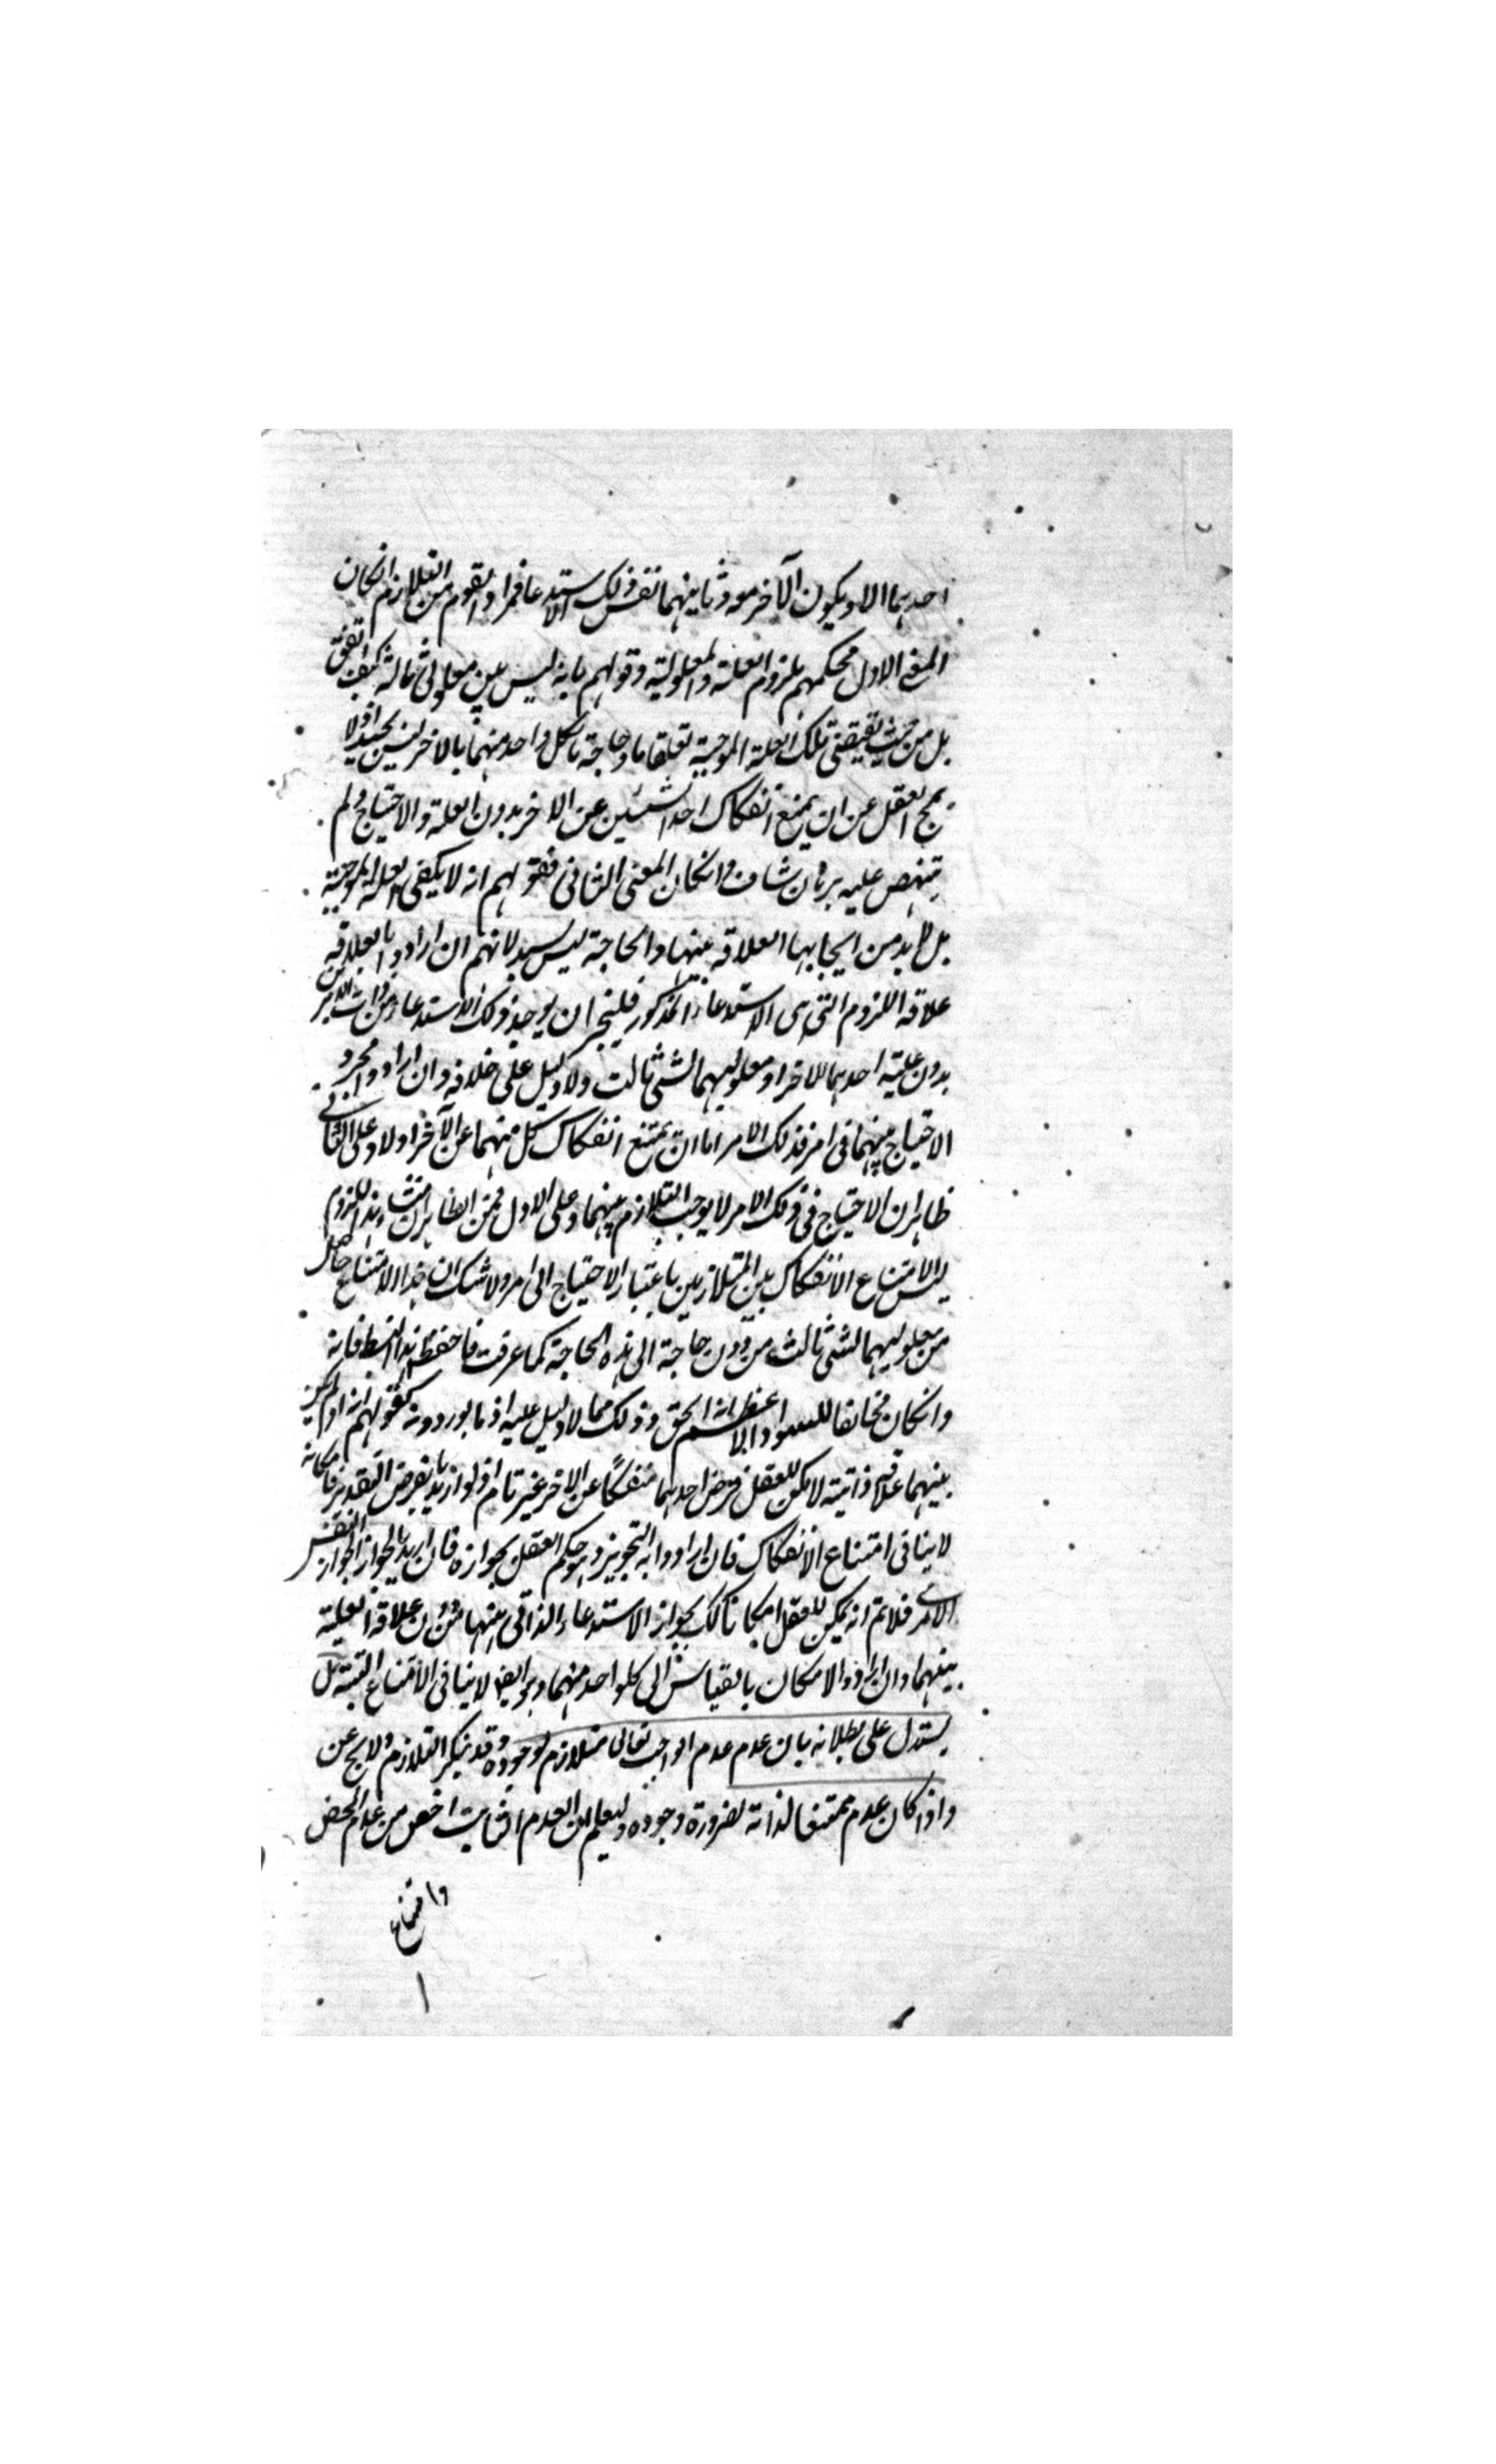 احدهما الا ويكون الآخر معه وثانيهما نفس ذلك الاستدعا فمراد القوم من التلازم انكان
المعنى الاول فحكمهم بلزوم العلة والمعلولية وقولهم بانه ليس بين معلولى ثالثة كيف اتفق
بل من حيث يقتضى تلك العلة الموجبة تعلقا ما وحاجة ما لكل واحد منهما بالاخر ليس بجيد اذ لا
يمج العقل عن ان يمنع انفكاك احد الشيئين عن الاخر بدون العلة والاحتياج ولم
ينهض عليه برهان شاف وانكان المعنى الثانى فقولهم انه لا يكفى العلة الموجبة
بل لا بد من ايجابها العلاقة بينهما والحاجة ليس بسديد لانهم ان ارادوا بالعلاقة
علاقة اللزوم التى هى الاستدعاء المذكور فليجز ان يوجد ذلك الاستدعاء من ذات الامرين
بدون علية احدهما للاخر او معلوليهما لشئ ثالث ولا دليل على خلافه وان ارادوا مجرد
الاحتياج بينهما فى امر فذلك الامر اما ان يمتنع انفكاك كل منهما عن الآخر اولا وعلى الثانى
ظاهر ان الاحتياج فى ذلك الامر لا يوجب التلازم بينهما وعلى الاول فمن الظاهر ان منشا هذا اللزوم
ليس الا امتناع الانفكاك بين المتلازمين باعتبار الاحتياج الى امر ولا شك ان هذا الامتناع حاصل
من معلوليهما لشئ ثالث من دون حاجة الى هذه الحاجة كما عرفت فاحفظ هذا النمط فانه
وانكان مخالفا للسواد الاعظم الا انه الحق وذلك مما لا دليل عليه اذ ما يوردونه كقولهم انه لو لم يكن
بينهما علاقة ذاتية لامكن للعقل فرض احدهما منفكًا عن الاخر غير تام اذ لو اريد بالفرض التقدير فامكانه
لا ينافى امتناع الانفكاك فان ارادوا به التجويز وهو حكم العقل بجوازه فان اريد بالجواز الجواز النفس
الامرى فلا تم انه يمكن للعقل امكانا كك بجواز الاستدعاء الذاتى بينهما من دون علاقة العلية
بينهما وان ارادوا الامكان بالقياس الى كلواحد منهما وهو ايضا لا ينافى الامتناع البتة بل
يستدل على بطلانه بان عدم عدم الواجب تعالى متلازم لوجوده وقد ينكر التلازم ولا يخ عن
واذا كان عدم ممتنعا لذاته لضرورة وجوده وليعلم ان العدم الثابت اخص من عدم المحض
وامتناع